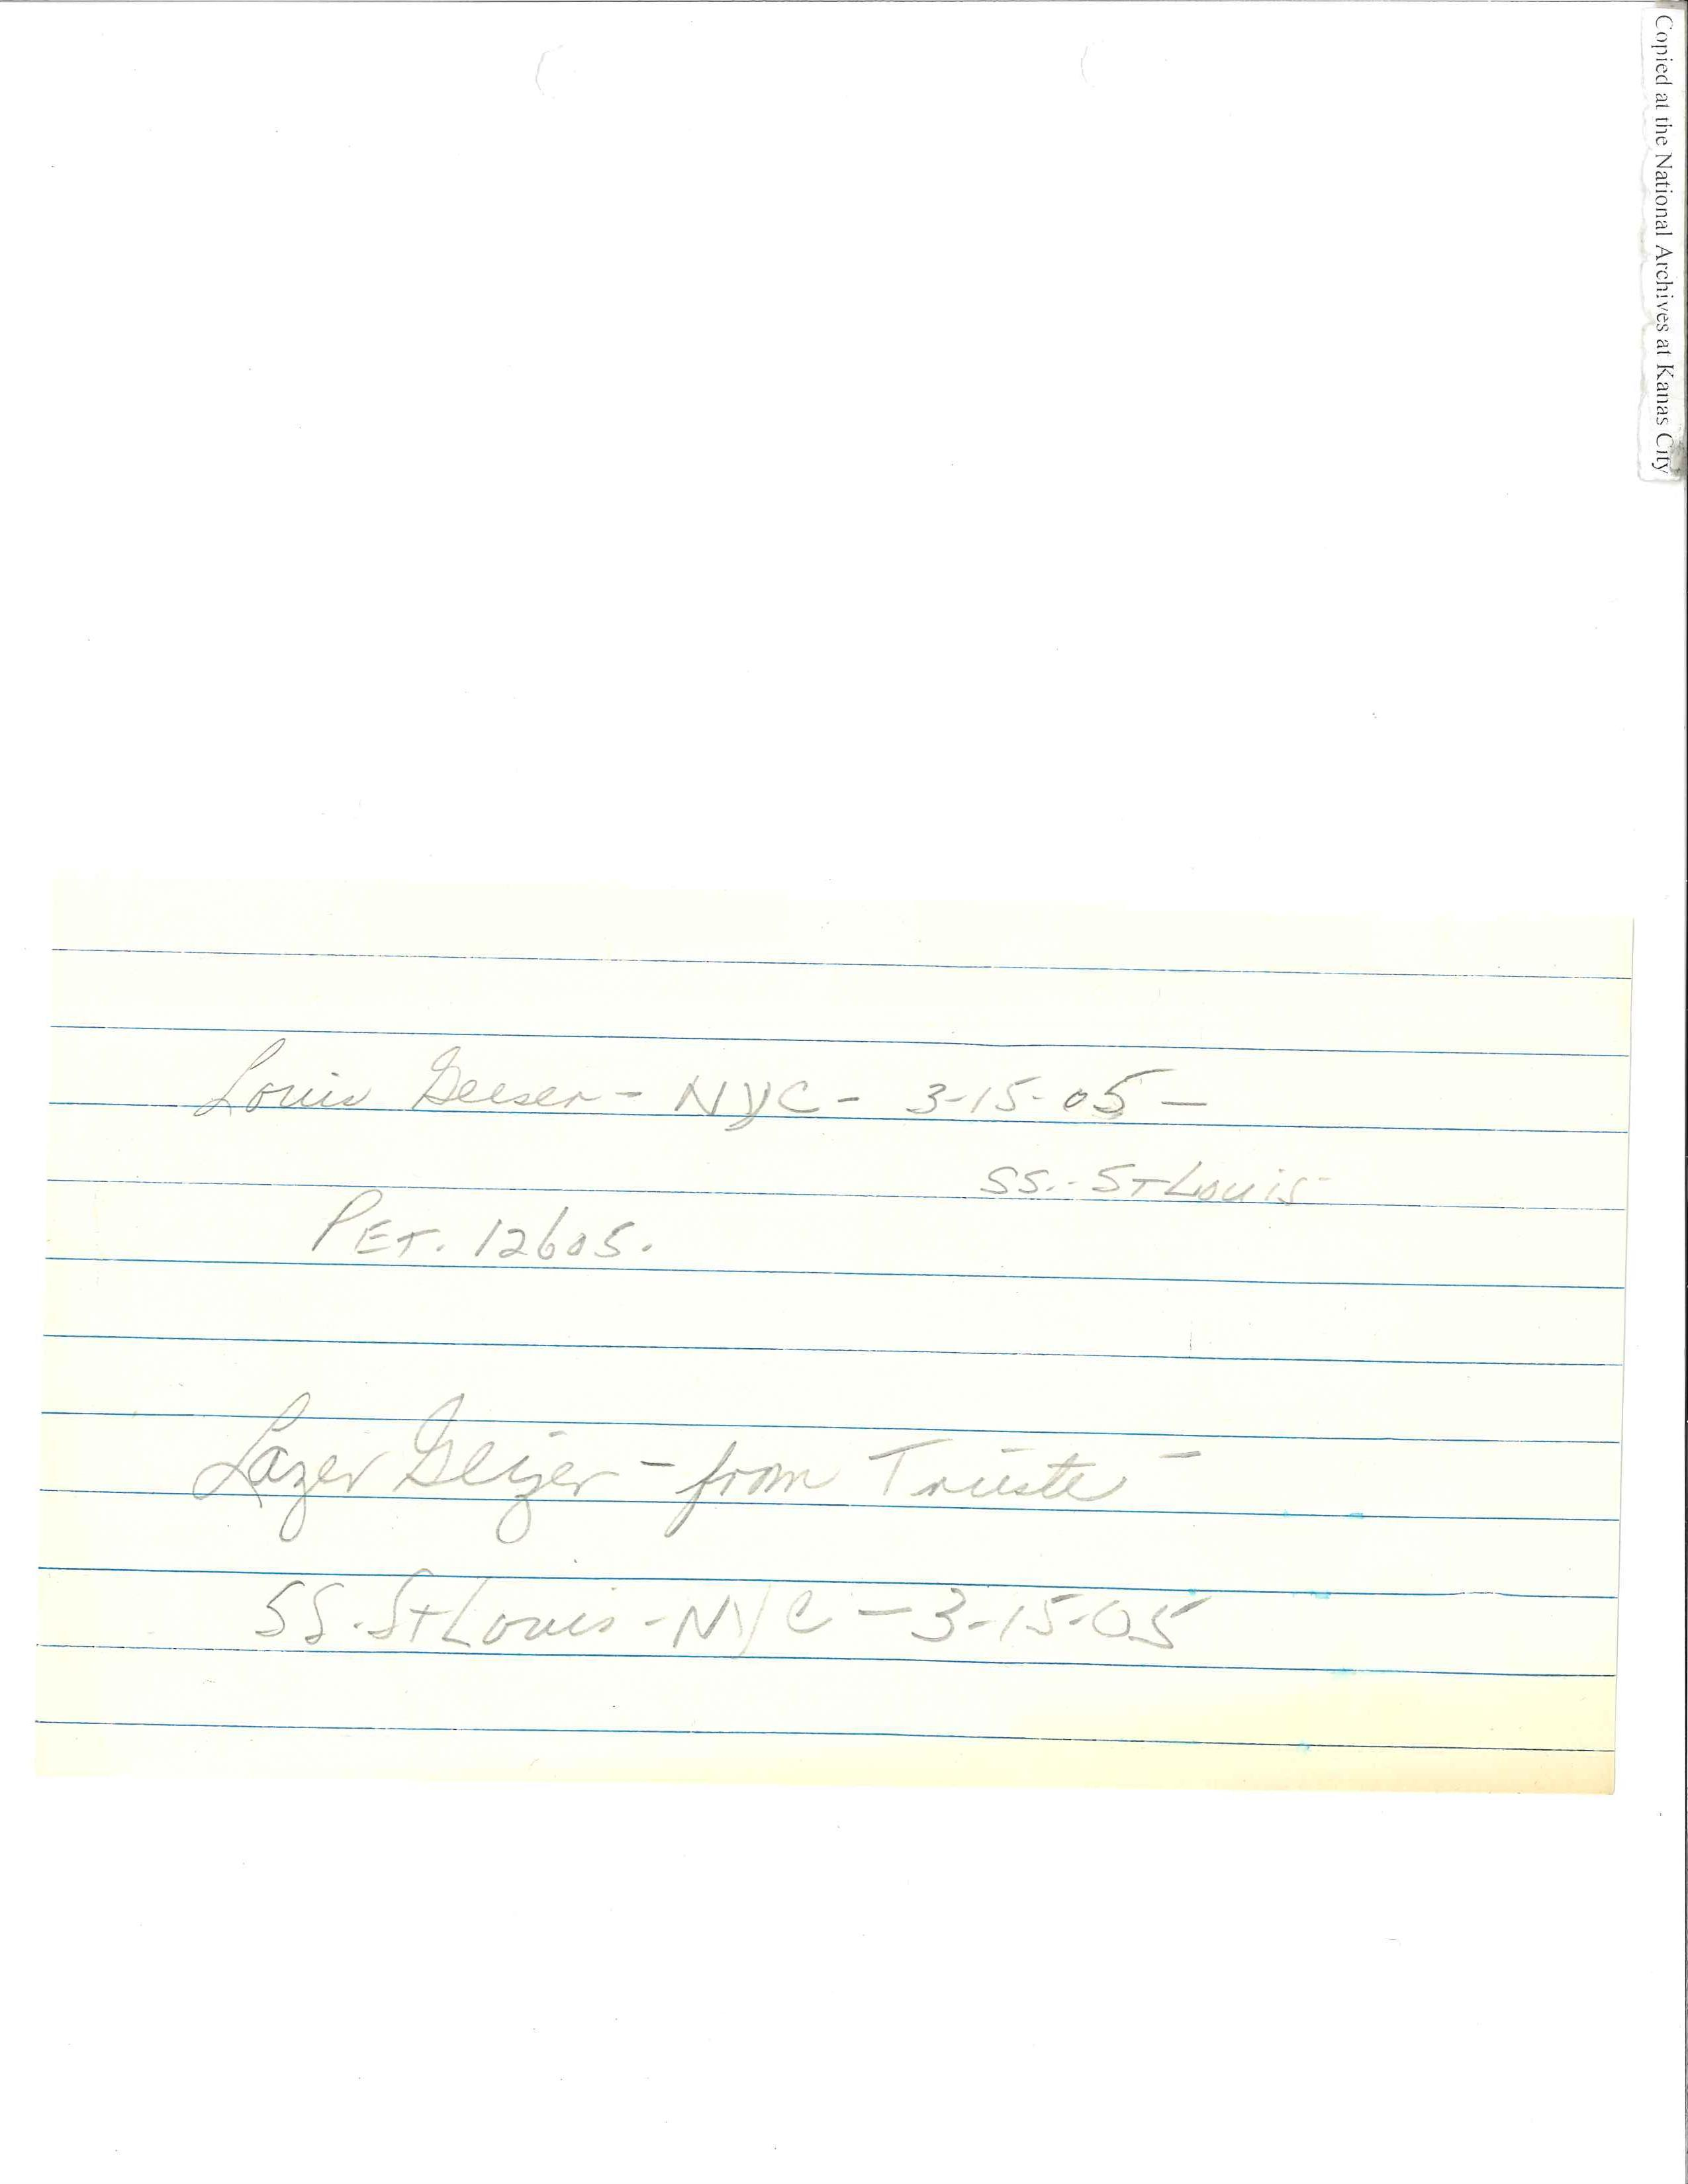 Copied at the National Archives at Kanas City
Louis Geeser - NYC - 3-15-05 -
SS.- St Louis -
PET. 12605.
Lazer Geizer - from Trieste -
SS. St Louis - NYC - 3-15-05